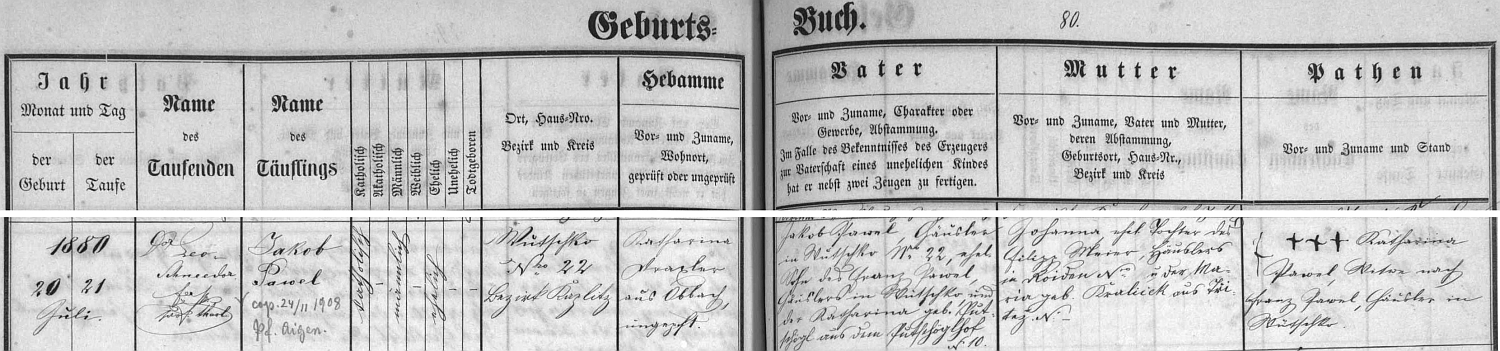 Geburts-
Buch.
80.
Jahr
Monat und Tag
der
Geburt
der
Taufe
Name
des
Taufenden
Name
des
Täuflings
Katholisch
Akatholisch
Männlich
Weiblich
Ehelich
Unehelich
Todtgeboren
Ort, Haus-Nro.
Bezirk und Kreis
Hebamme
Vor- und Zuname,
Wohnort,
geprüft oder ungeprüft
Vater
Vor- und Zuname, Charakter oder
Gewerbe, Abstammung.
Im Falle des Bekenntnisses des Erzeugers
zur Vaterschaft eines unehelichen Kindes
hat er nebst zwei Zeugen zu fertigen.
Mutter
Vor- und Zuname, Vater und Mutter,
deren Abstammung,
Geburtsort, Haus-Nr.,
Bezirk und Kreis
Pathen
Vor- und Zuname und Stand
1880
20 21
Juli.
Jakob
Pawel
cop. 24/II 1908
Pf. Aigen.
katholisch
männlich
ehelich
Wutschko
Nro 22
Bezirk Kaplitz
Katharina
Draxler
aus
ungepft.
Jakob Pawel, Häusler
in Wutschko No 22, ehel.
Sohn des Franz Pawel,
Häuslers in Wutschko und
der Katharina geb. Put-
schögl aus dem Putschöglhof
N. 10.
Johanna ehel. Tochter des
Filipp Meier, Häuslers
in No u. der Ma-
ria geb. aus
No
+++ Katharina
Pawel, Witwe nach
Franz Pawel, Häusler in
Wutschko.